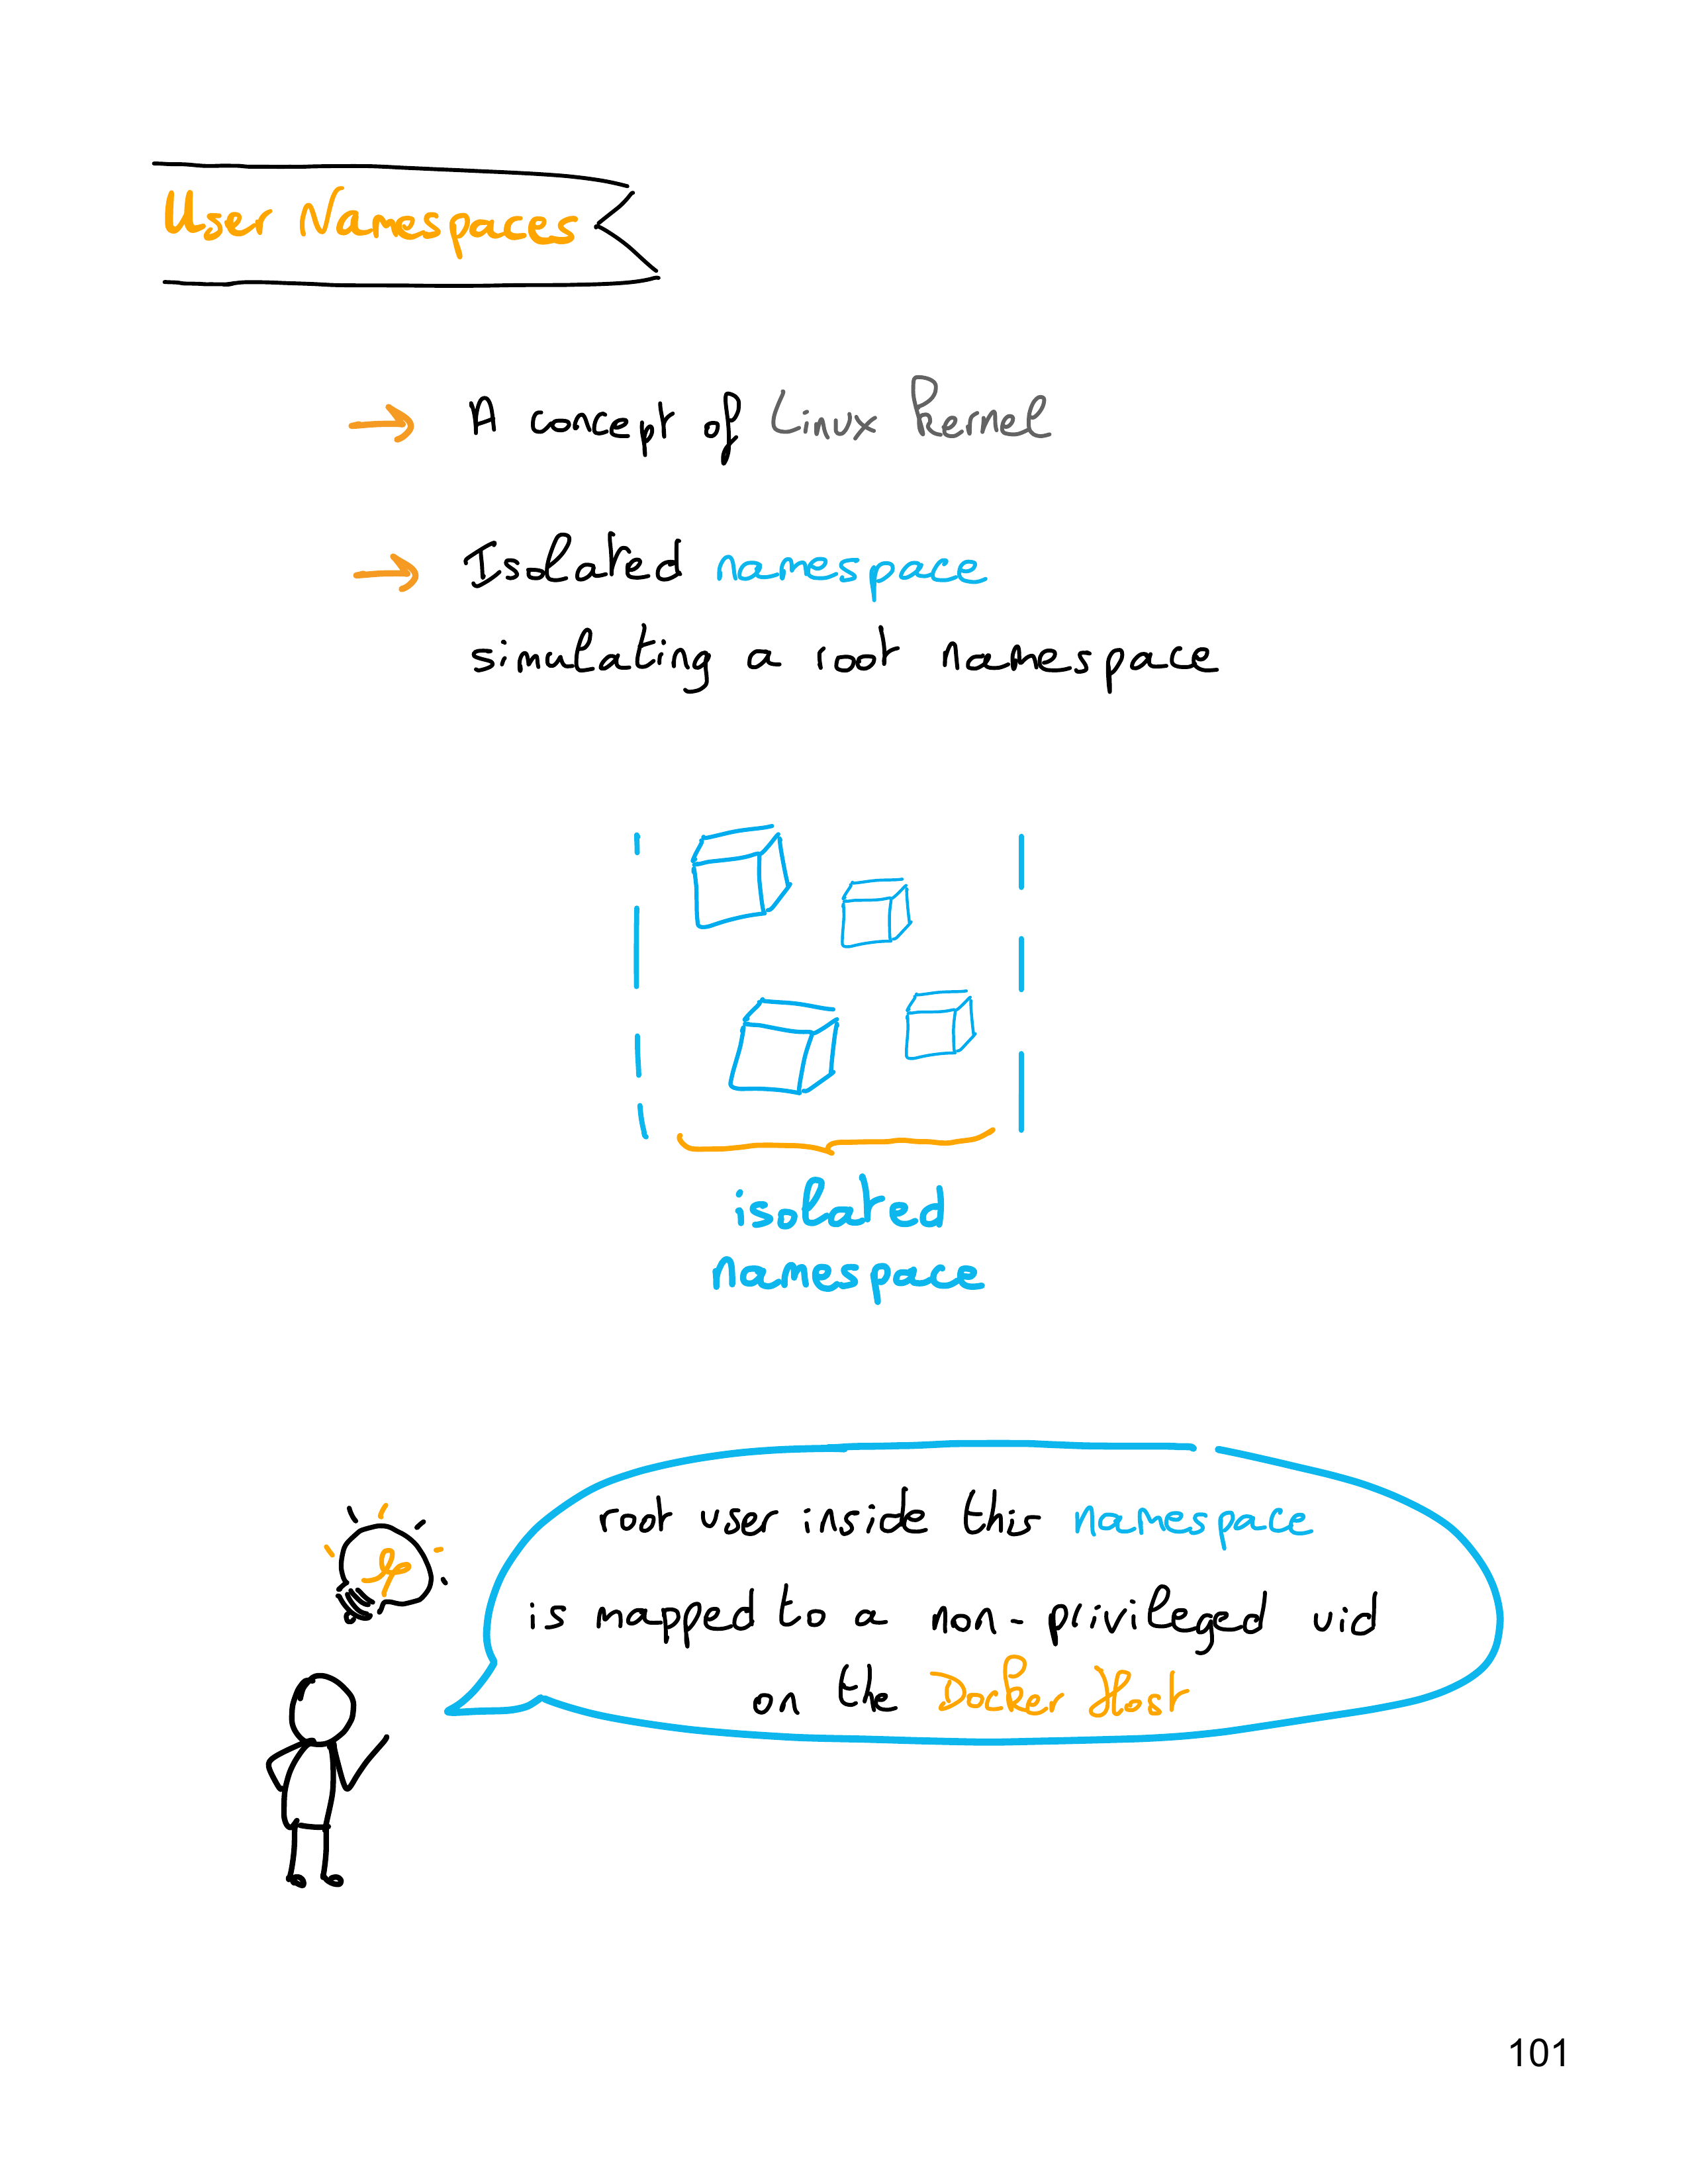 User Namespaces
→ A concept of Linux Kernel
→ Isolated namespace
simulating a root namespace
isolated
namespace
root user inside this namespace
is mapped to a non-privileged uid
on the Docker Host
101